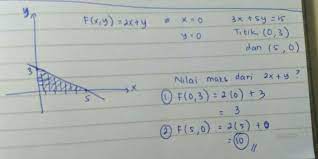 y
F(x,y) = 2x+y
x = 0
3x + 5y = 15
y = 0
Titik (0,3)
dan (5,0)
3
5
x
Nilai maks dari 2x+y?
① F(0,3) = 2(0) + 3
= 3
② F(5,0) = 2(5) + 0
= 10 //